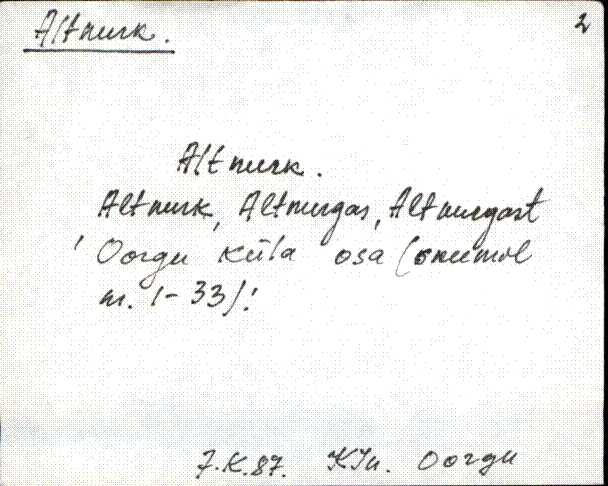 Altnurk. 2
Altnurk.
Altnurk, Altnurgas, Altnurgast
' Oorgu küla osa (
nr. 1-33)!
F.K.87. KJn. Oorgu